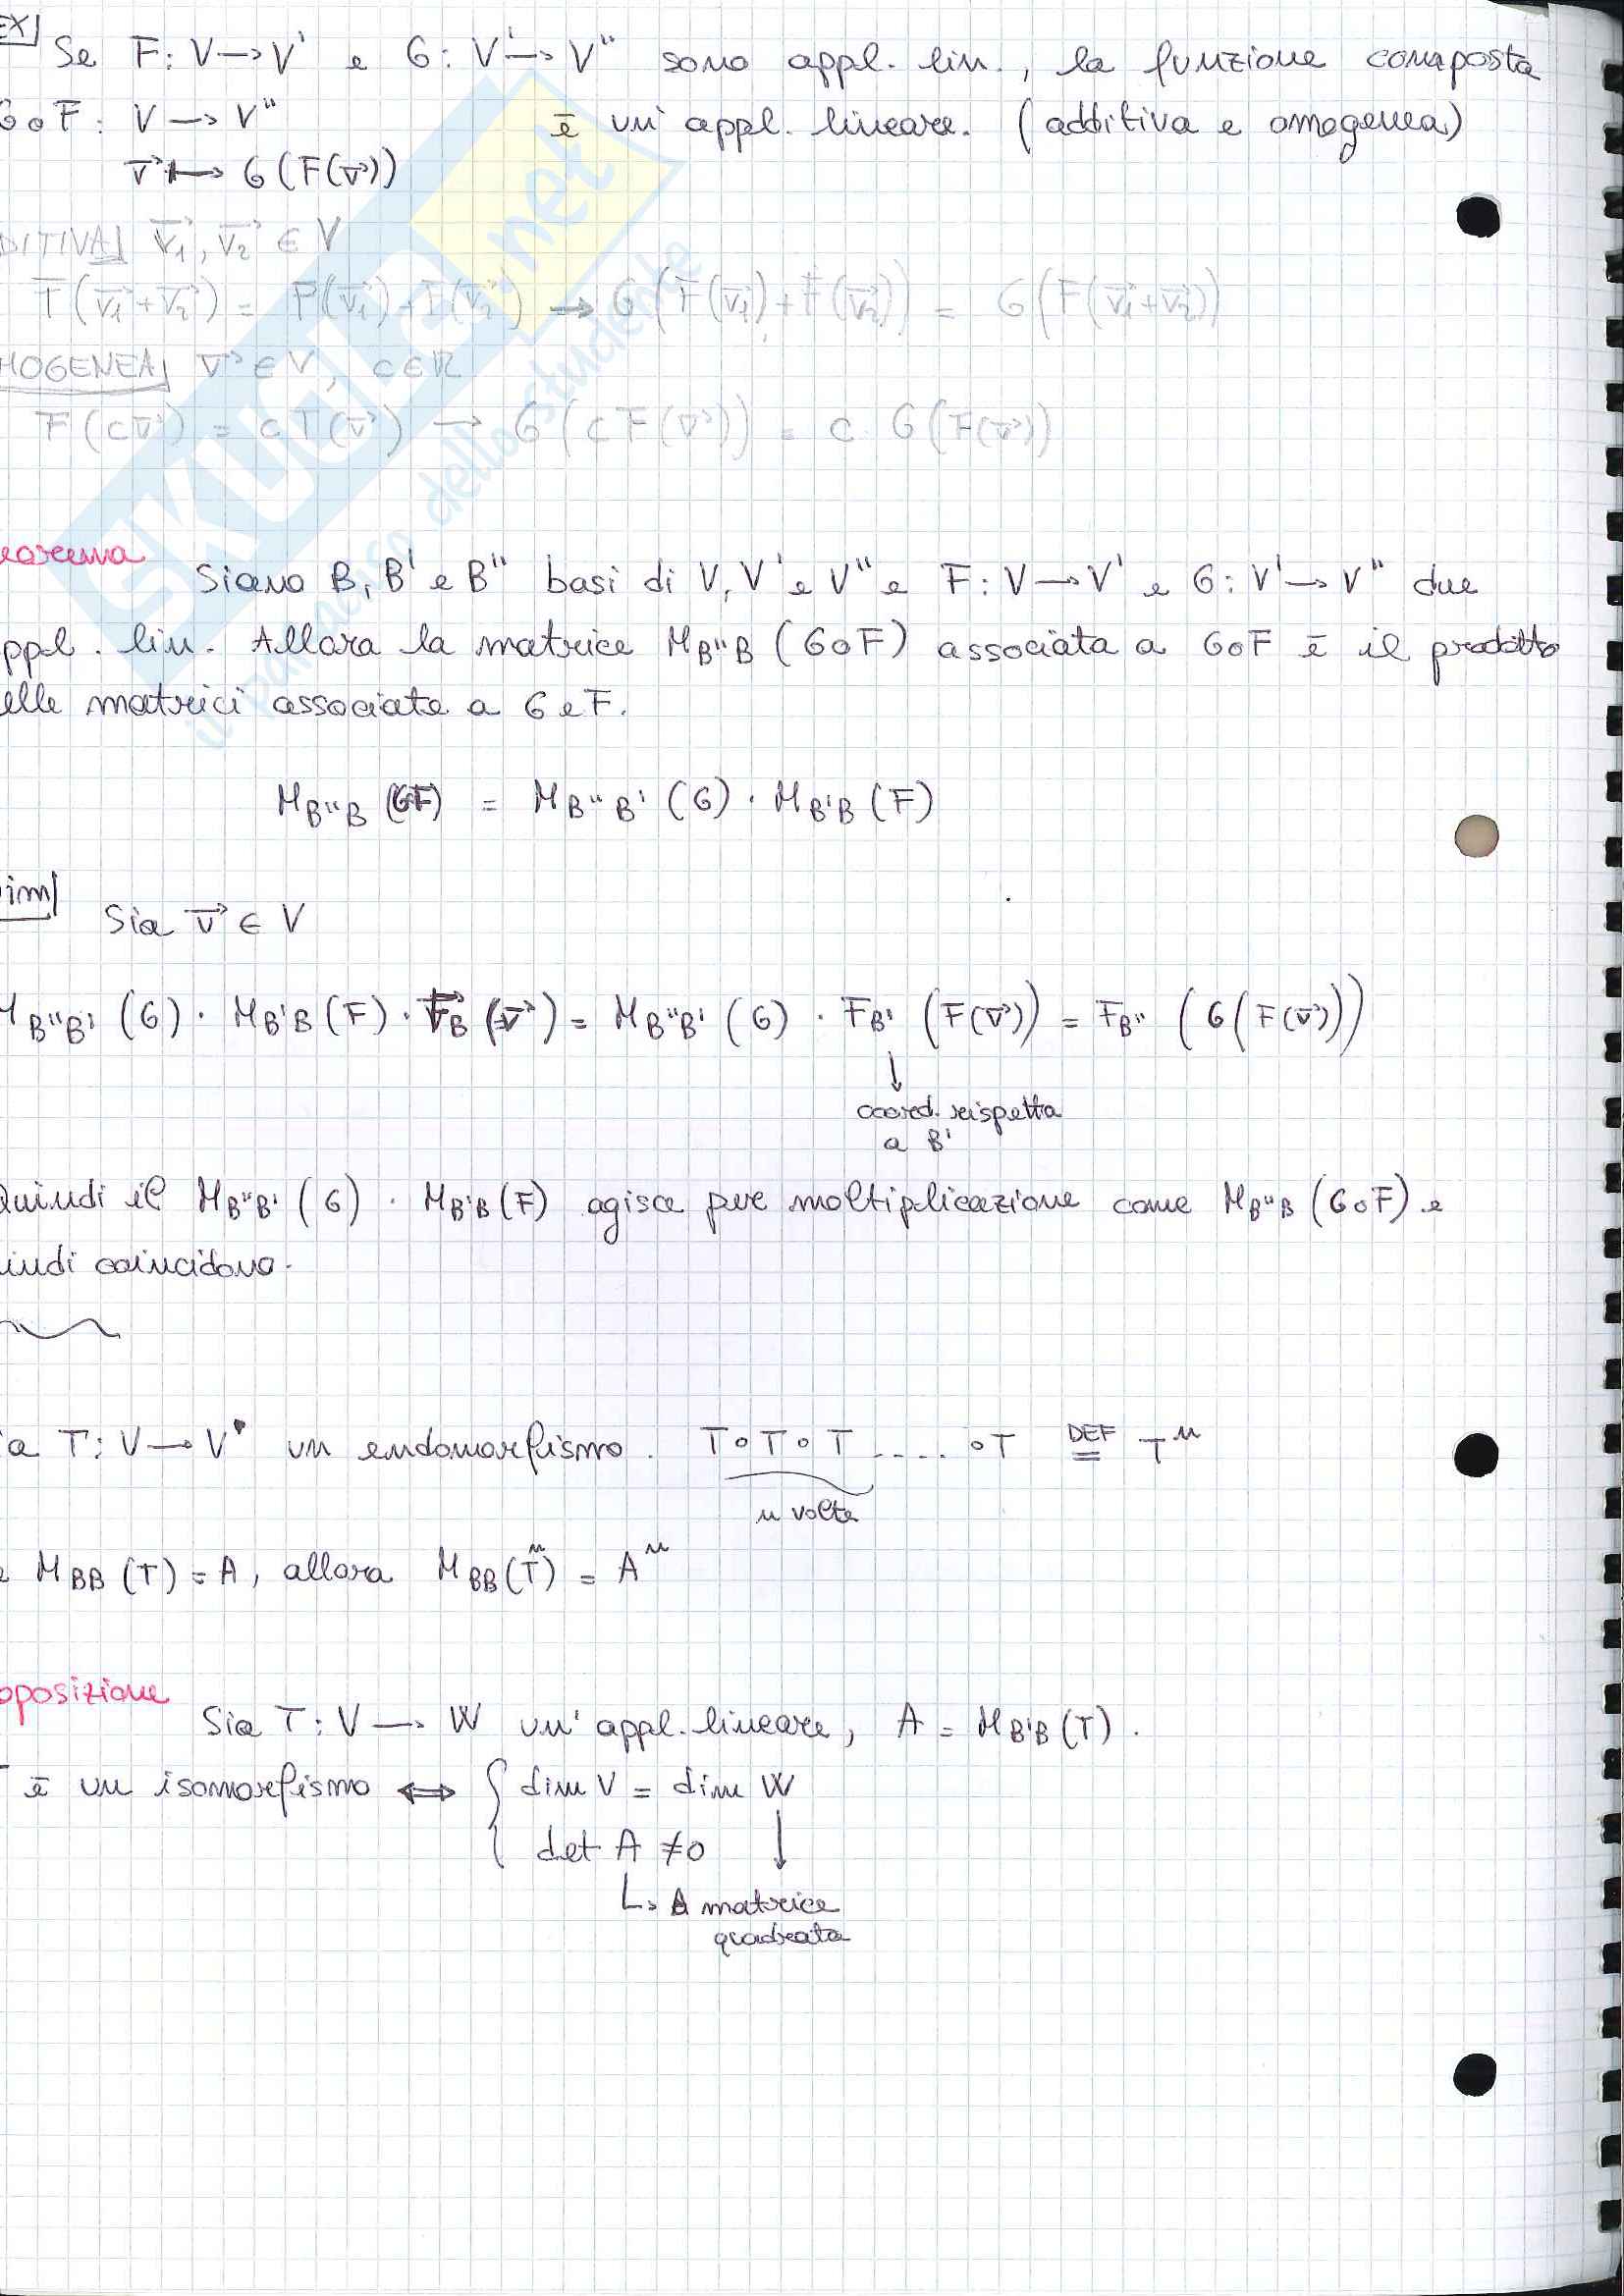 EX] Se F: V → V' e G: V' → V'' sono appl. lin., la funzione composta
GoF: V → V'' è un' appl. lineare. (additiva e omogenea)
v⃗ ↦ G(F(v⃗))
DITIVA] v⃗₁, v⃗₂ ∈ V
T(v⃗₁+v⃗₂) = F(v⃗₁)+F(v⃗₂) → G(F(v⃗₁)+F(v⃗₂)) = G(F(v⃗₁+v⃗₂))
MOGENEA] v⃗ ∈ V, c∈ℝ
F(cv⃗) = cT(v⃗) → G(cF(v⃗)) = c G(F(v⃗))
SKUOLA.net
il paradiso dello studente
eorema Siano B, B' e B'' basi di V, V' e V'' e F: V → V' e G: V' → V'' due
ppl. lin. Allora la matrice M_B''B (GoF) associata a GoF è il prodotto
elle matrici associate a G e F.
M_B''B (GF) = M_B''B' (G) · M_B'B (F)
im] Sia v⃗ ∈ V
M_B''B' (G) · M_B'B (F) · F_B (v⃗) = M_B''B' (G) · F_B' (F(v⃗)) = F_B'' (G(F(v⃗)))
↓
coord. rispetto
a B'
Quindi il M_B''B' (G) · M_B'B (F) agisce per moltiplicazione come M_B''B (GoF) e
uindi coincidono.
ia T: V → V un endomorfismo. T∘T∘T .... ∘T DEF= Tⁿ
n volte
e M_BB (T) = A, allora M_BB (Tⁿ) = Aⁿ
oposizione Sia T: V → W un' appl. lineare, A = M_B'B (T).
T è un isomorfismo ⟺ { dim V = dim W
det A ≠ 0 ↓
↳ A matrice
quadrata